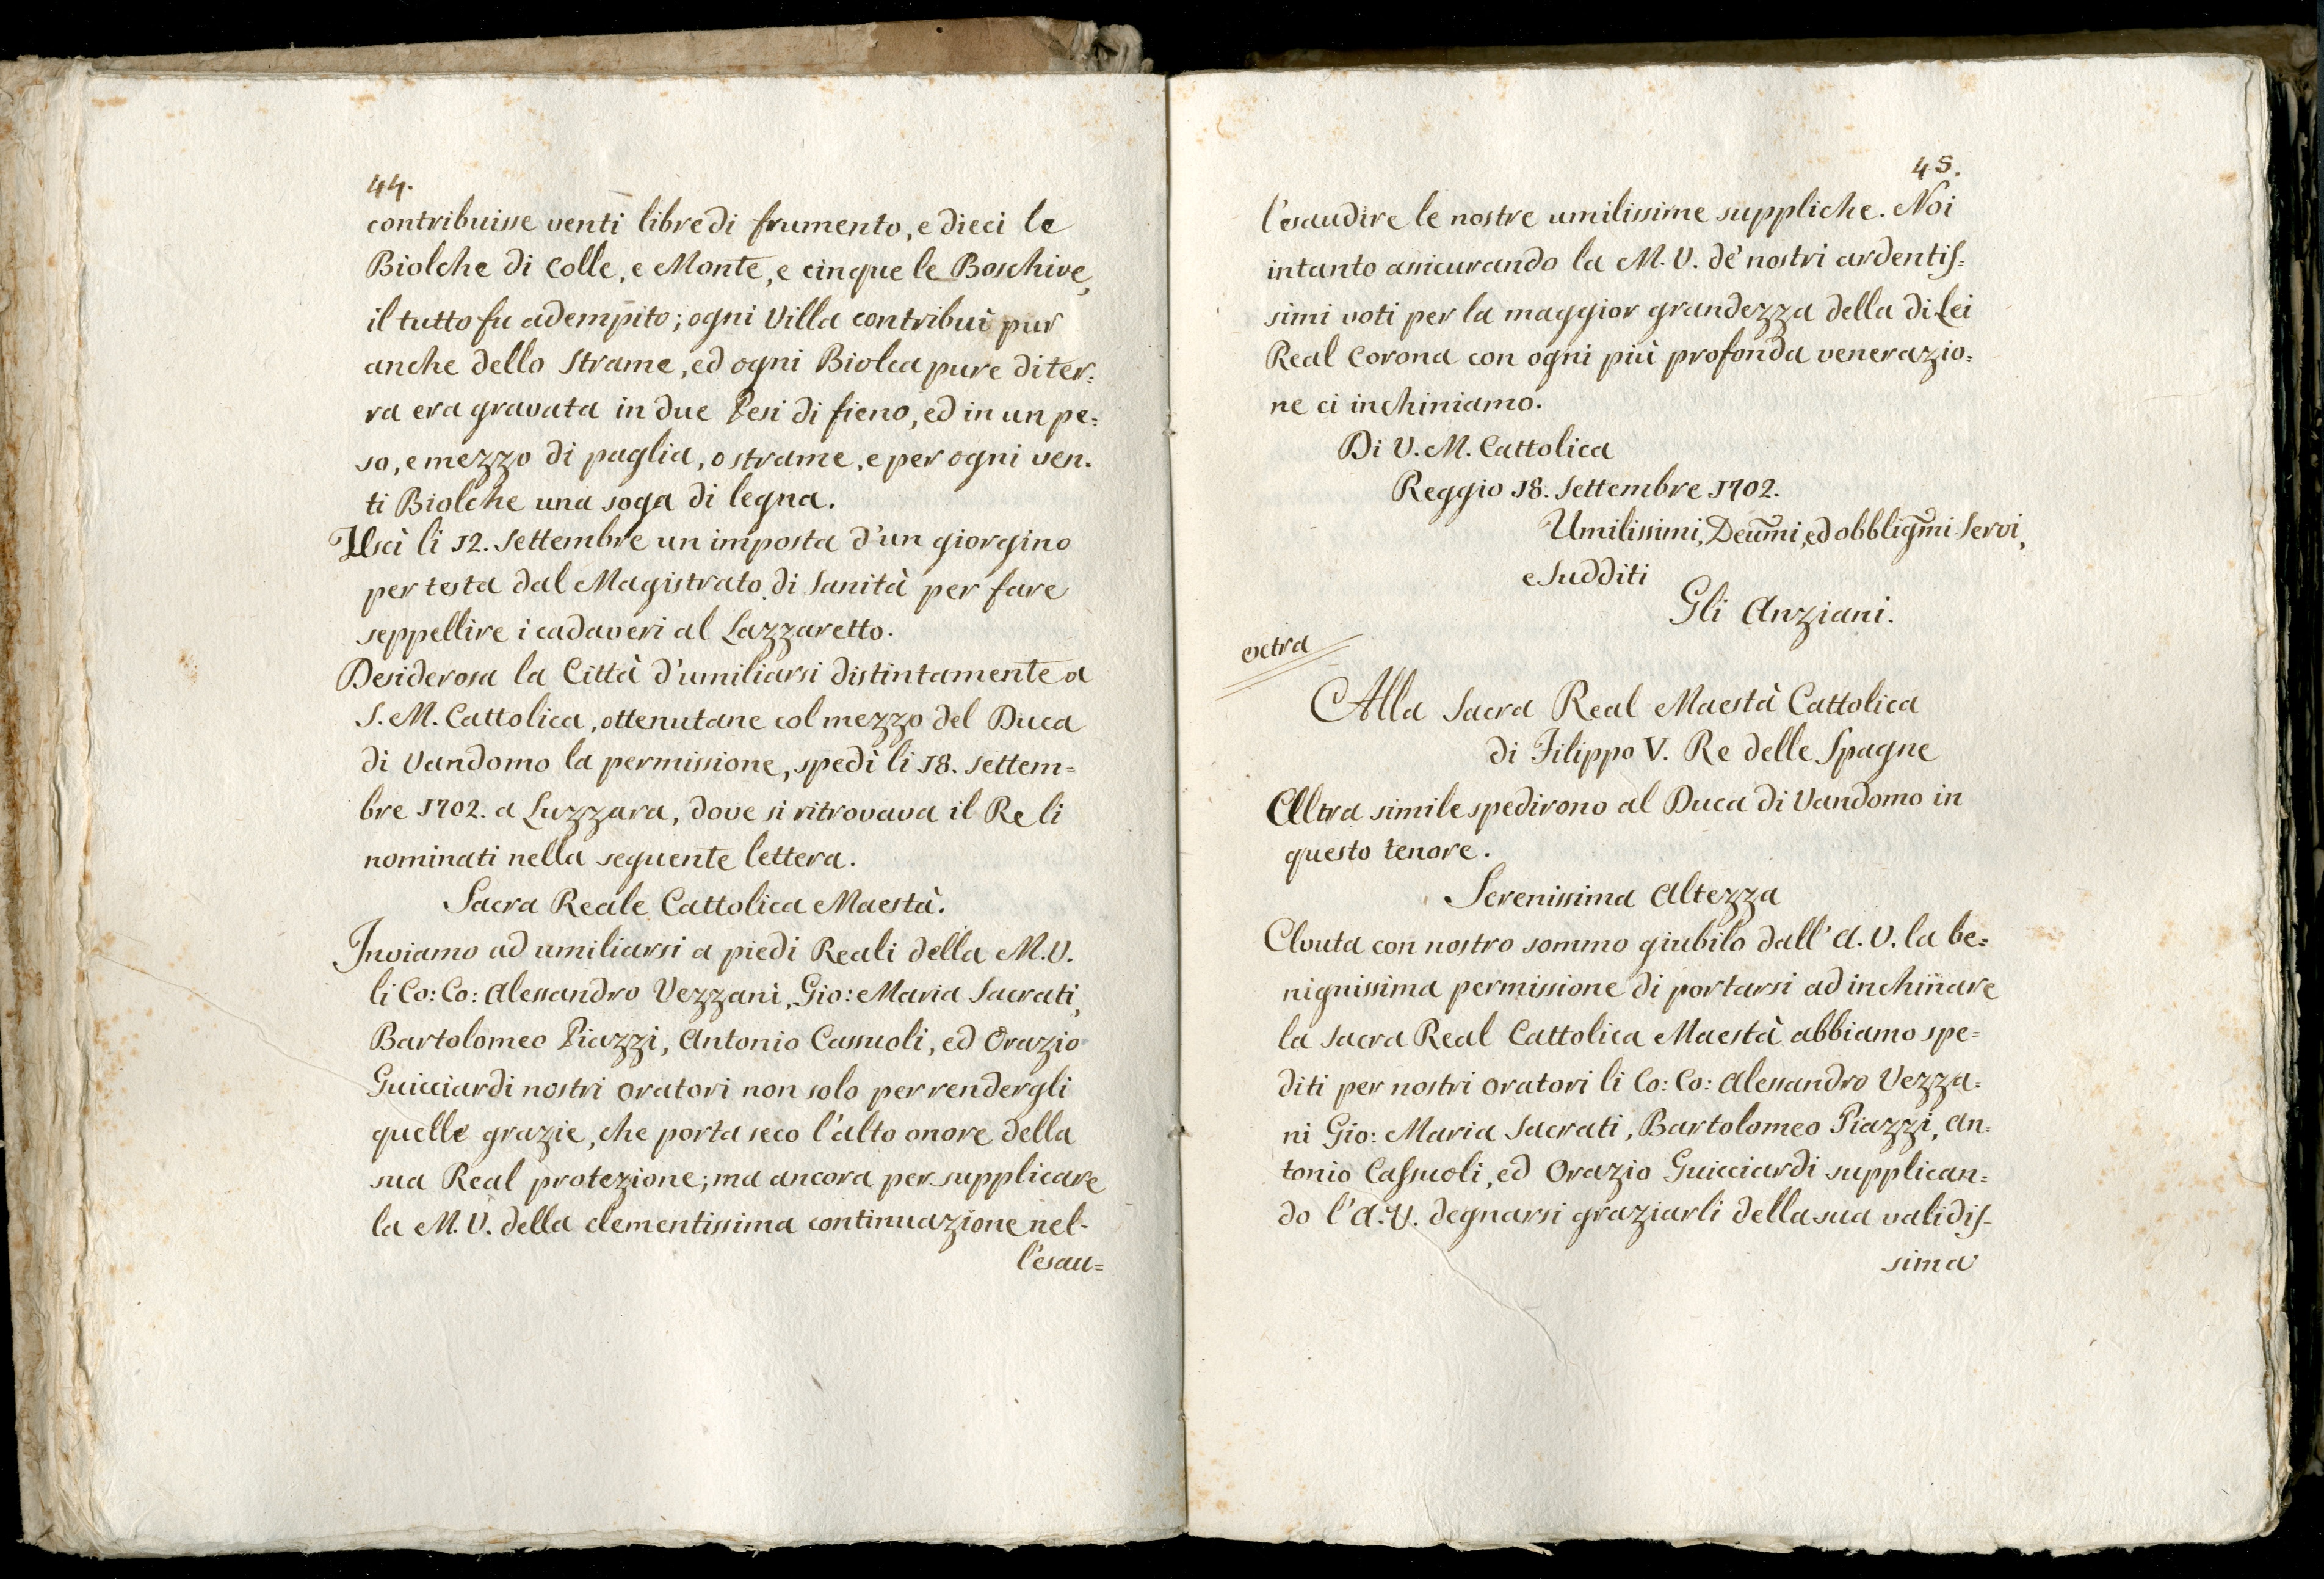 44.
contribuisse venti libre di frumento, e dieci le
Biolche di Colle, e Monte, e cinque le Boschive,
il tutto fu adempito; ogni Villa contribuì pur
anche dello Strame, ed ogni Biolca pure di ter=
ra era gravata in due Pesi di fieno, ed in un pe=
so, e mezzo di paglia, o strame, e per ogni ven=
ti Biolche una soga di legna.
Uscì li 12. Settembre un imposta d'un giorgino
per testa dal Magistrato di Sanità per fare
seppellire i cadaveri al Lazzaretto.
Desiderosa la Città d'umiliarsi distintamente a
S. M. Cattolica, ottenutane col mezzo del Duca
di Vandomo la permissione, spedì li 18. Settem=
bre 1702. a Luzzara, dove si ritrovava il Re li
nominati nella seguente lettera.
Sacra Reale Cattolica Maestà.
Inviamo ad umiliarsi a piedi Reali della M. V.
li Co: Co: Alessandro Vezzani, Gio: Maria Sacrati,
Bartolomeo Piazzi, Antonio Cassuoli, ed Orazio
Guicciardi nostri Oratori non solo per rendergli
quelle grazie, che porta seco l'alto onore della
sua Real protezione; ma ancora per supplicare
la M. V. della clementissima continuazione nel-
l'esau=
45.
l'esaudire le nostre umilissime suppliche. Noi
intanto assicurando la M. V. de' nostri ardentis=
simi voti per la maggior grandezza della di Lei
Real Corona con ogni più profonda venerazio=
ne ci inchiniamo.
Di V. M. Cattolica
Reggio 18. Settembre 1702.
Umilissimi, Deūmi, ed obbligm̃i Servi,
e Sudditi
Gli Anziani.
extra
Alla Sacra Real Maestà Cattolica
di Filippo V. Re delle Spagne
Altra simile spedirono al Duca di Vandomo in
questo tenore.
Serenissima Altezza
Avuta con nostro sommo giubilo dall'A. V. la be=
nignissima permissione di portarsi ad inchinare
la Sacra Real Cattolica Maestà abbiamo spe=
diti per nostri Oratori li Co: Co: Alessandro Vezza=
ni Gio: Maria Sacrati, Bartolomeo Piazzi, An=
tonio Cassuoli, ed Orazio Guicciardi supplican=
do l'A. V. degnarsi graziarli della sua validis-
sima